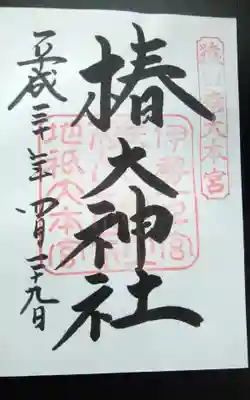 猿田彦大本宮
椿大神社
伊勢一宮
地祇大本宮
平成三十年四月二十九日